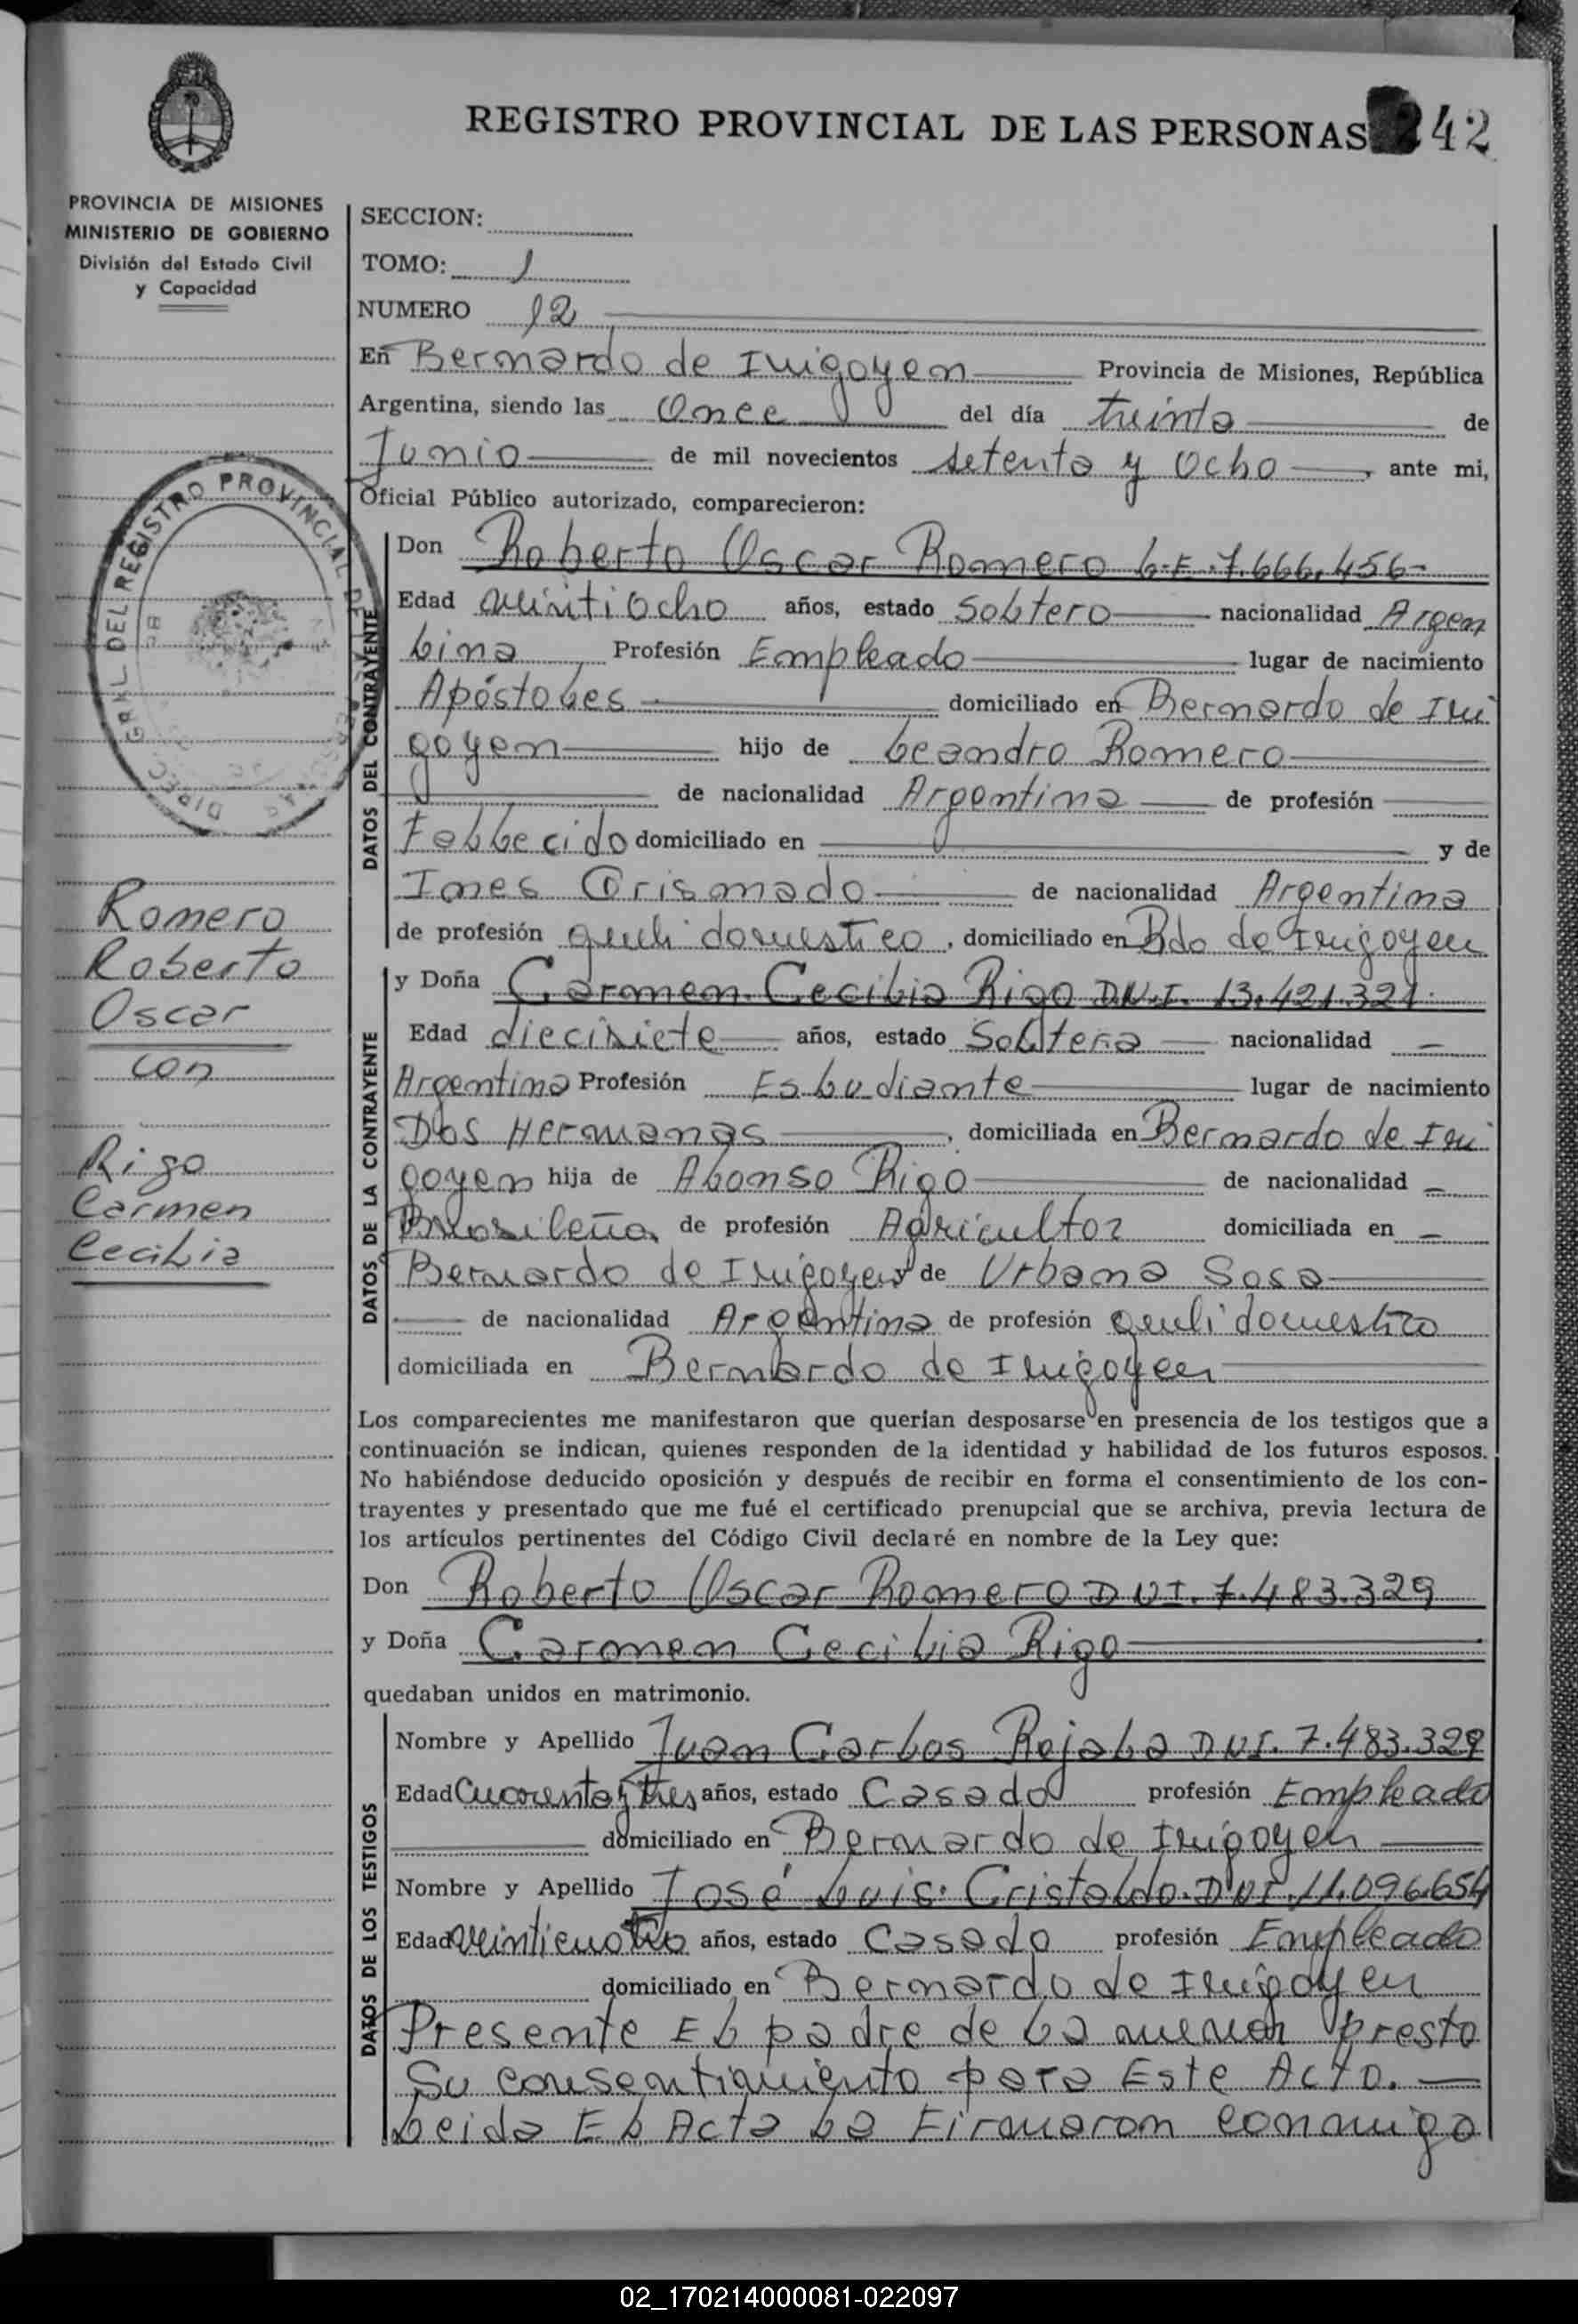 REGISTRO PROVINCIAL DE LAS PERSONAS 242
PROVINCIA DE MISIONES
MINISTERIO DE GOBIERNO
División del Estado Civil
y Capacidad
SECCION:
TOMO: 1
NUMERO 12
En Bernardo de Irrigoyen Provincia de Misiones, República
Argentina, siendo las Once del día treinta de
Junio de mil novecientos setenta y Ocho, ante mi,
Oficial Público autorizado, comparecieron:
DEL REGISTRO PROVINCIAL DE
DIREC. GRAL.
Romero
Roberto
Oscar
con
Rigo
Carmen
Cecilia
DATOS DEL CONTRAYENTE
Don Roberto Oscar Romero L.E. 7.666.456-
Edad veintiocho años, estado Soltero nacionalidad Argen
tina, Profesión Empleado lugar de nacimiento
Apóstoles domiciliado en Bernardo de Irri
goyen hijo de Leandro Romero
de nacionalidad Argentina de profesión
Fallecido domiciliado en y de
Ines Crismado de nacionalidad Argentina
de profesión queh domestico, domiciliado en Bdo de Irrigoyen
DATOS DE LA CONTRAYENTE
y Doña Carmen Cecilia Rigo D.N.I. 13.421.321.
Edad diecisiete años, estado Soltera nacionalidad –
Argentina Profesión Estudiante lugar de nacimiento
Dos Hermanas, domiciliada en Bernardo de Irri
goyen hija de Alonso Rigo de nacionalidad –
Brasileña de profesión Agricultor domiciliada en –
Bernardo de Irrigoyen y de Urbana Sosa
de nacionalidad Argentina de profesión queh domestico
domiciliada en Bernardo de Irrigoyen
Los comparecientes me manifestaron que querían desposarse en presencia de los testigos que a
continuación se indican, quienes responden de la identidad y habilidad de los futuros esposos.
No habiéndose deducido oposición y después de recibir en forma el consentimiento de los con-
trayentes y presentado que me fué el certificado prenupcial que se archiva, previa lectura de
los artículos pertinentes del Código Civil declaré en nombre de la Ley que:
Don Roberto Oscar Romero DNI. 7.483.329
y Doña Carmen Cecilia Rigo
quedaban unidos en matrimonio.
DATOS DE LOS TESTIGOS
Nombre y Apellido Juan Carlos Rejala DNI. 7.483.329
Edad Cuarenta y tres años, estado Casado profesión Empleado
domiciliado en Bernardo de Irrigoyen
Nombre y Apellido José Luis Cristaldo. DNI. 11.096.654
Edad veinticuatro años, estado Casado profesión Empleado
domiciliado en Bernardo de Irrigoyen
Presente El padre de la menor presto
Su consentimiento para Este Acto.
Leida El Acta la Firmaron conmigo
02_170214000081-022097